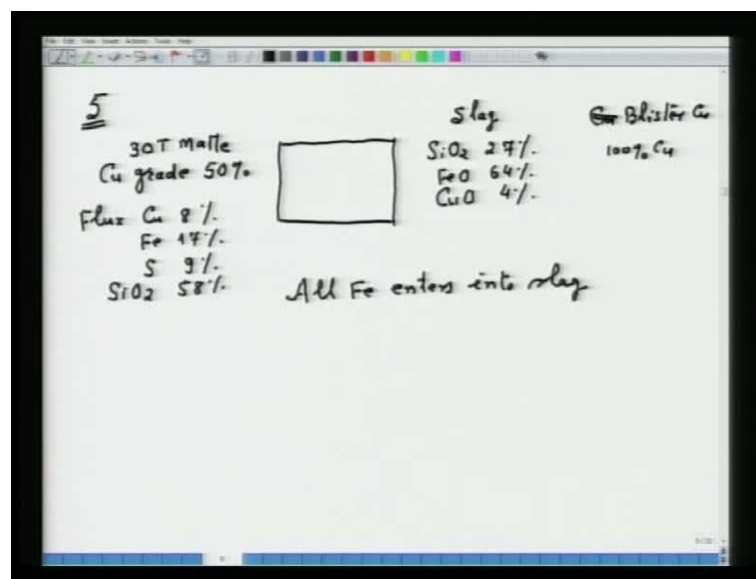 5
30T Matte
Cu grade 50%
Flux Cu 8%.
Fe 17%.
S 9%.
SiO2 58%.
Slag
SiO2 27%.
FeO 64%.
CuO 4%.
Blister Cu
100% Cu
All Fe enters into slag